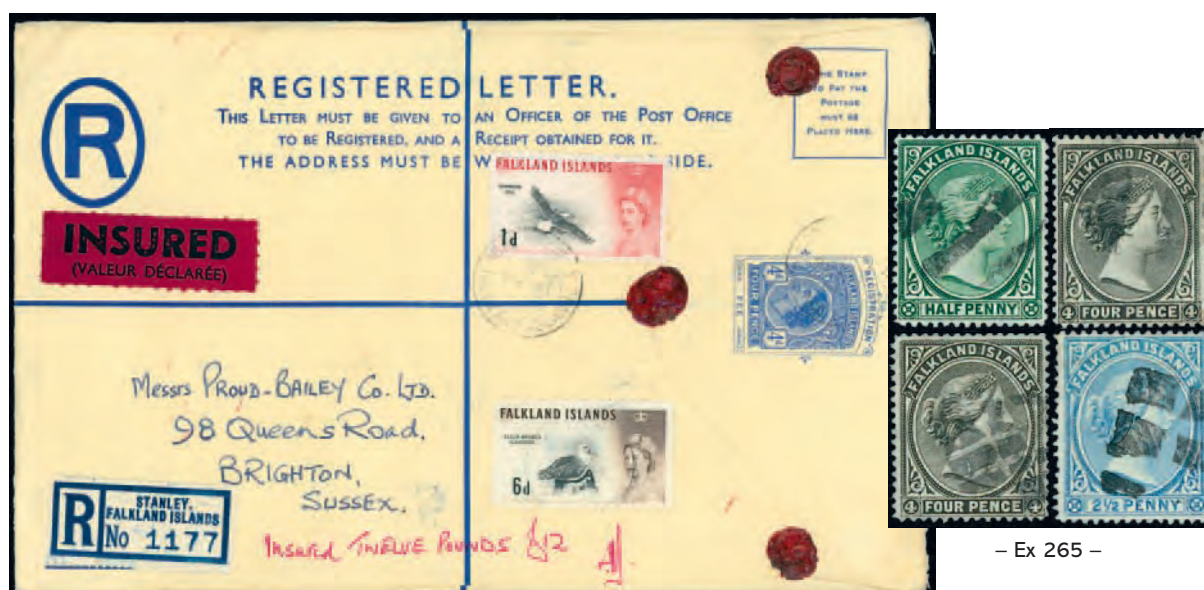 REGISTERED LETTER.
THIS LETTER MUST BE GIVEN TO AN OFFICER OF THE POST OFFICE
TO BE REGISTERED, AND A RECEIPT OBTAINED FOR IT.
THE ADDRESS MUST BE W SIDE.
HE STAMP
TO PAY THE
POSTAGE
MUST BE
PLACED HERE.
R
INSURED
(VALEUR DÉCLARÉE)
FALKLAND ISLANDS
1d
REGISTRATION
FOUR PENCE
4d
4d
FEE
Messrs PROUD-BAILEY Co. LTD.
98 Queens Road,
BRIGHTON,
SUSSEX.
FALKLAND ISLANDS
6d
R
STANLEY.
FALKLAND ISLANDS
No 1177
INSURED TWELVE POUNDS £12
FALKLAND ISLANDS
HALF PENNY
FALKLAND ISLANDS
4 FOUR PENCE 4
FALKLAND ISLANDS
4 FOUR PENCE 4
FALKLAND ISLANDS
2½ PENNY
– Ex 265 –